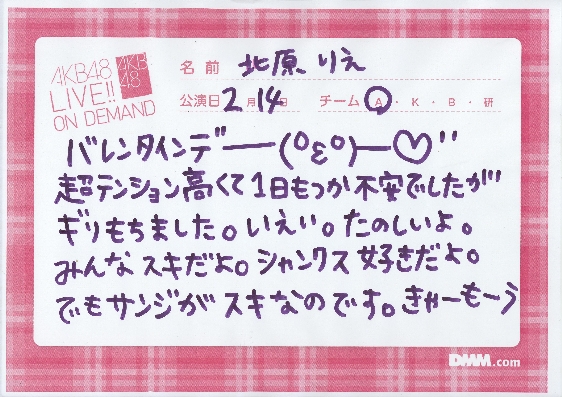 AKB48
LIVE!!
ON DEMAND
AKB
48
名前 北原りえ
公演日 2月14日 チーム A・K・B・研
バレンタインデー――(°ε°)―♡"
超テンション高くて1日もつか不安でしたが
ギリもちました。いえい。たのしいよ。
みんなスキだよ。シャンクス好きだよ。
でもサンジがスキなのです。きゃーもーう
DMM.com